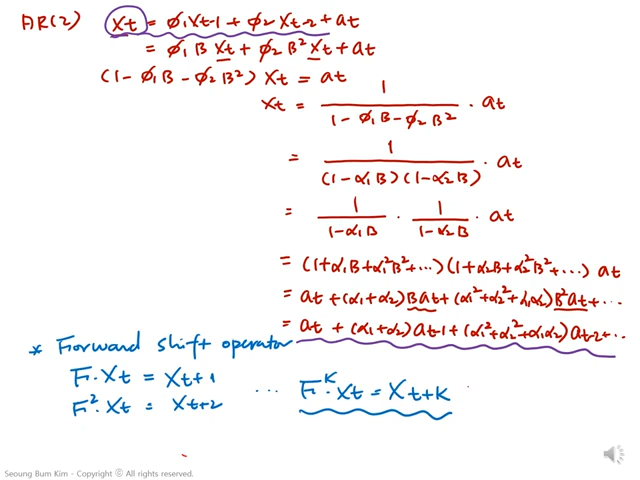 AR(2) Xt = ϕ₁Xt-1 + ϕ₂Xt-2 + at
= ϕ₁B Xt + ϕ₂B² Xt + at
(1 - ϕ₁B - ϕ₂B²) Xt = at
Xt = 1 / (1 - ϕ₁B - ϕ₂B²) · at
= 1 / ((1-α₁B)(1-α₂B)) · at
= 1 / (1-α₁B) · 1 / (1-α₂B) · at
= (1+α₁B+α₁²B²+···)(1+α₂B+α₂²B²+···) at
= at + (α₁+α₂)Bat + (α₁²+α₂²+α₁α₂)B²at + ···
= at + (α₁+α₂)at-1 + (α₁²+α₂²+α₁α₂)at-2 + ···
* Forward shift operator
F·Xt = Xt+1
F²·Xt = Xt+2 ··· F^K·Xt = Xt+K
Seoung Bum Kim - Copyright ⓒ All rights reserved.